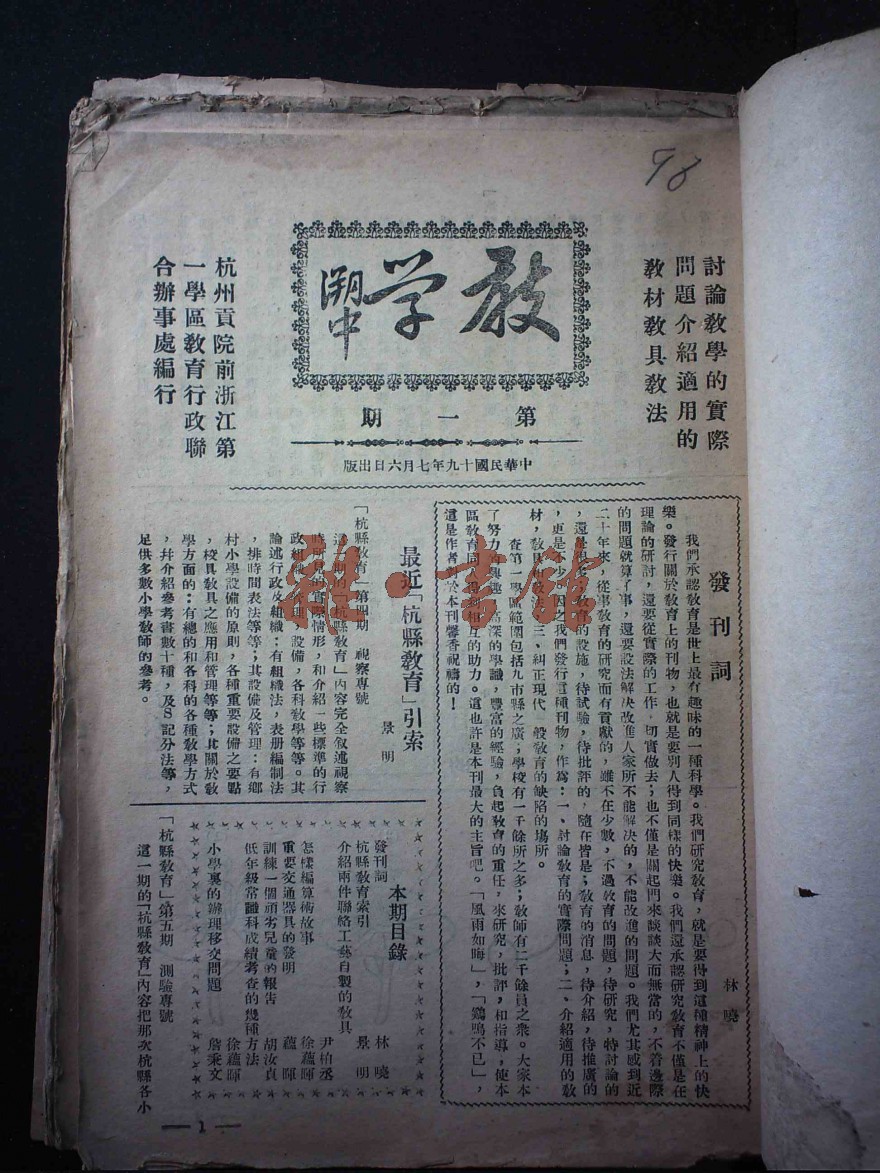 98
討論教學的實際
問題介紹適用的
教材教具教法
教學
第一期
中華民國十九年七月六日出版
杭州貢院前浙江第
一學區教育行政聯
合辦事處編行
發刊詞
林曉
我們承認教育是世上最有趣味的一種科學。我們研究教育,就是要得到這種精神上的快
樂。發行關於教育上的刊物,也就是要別人得到同樣的快樂。我們還承認研究教育不僅是在
理論的研討,還要從實際的工作,切實做去;也不僅是關起門來談談大而無當的,不着邊際
的問題就算了事,還要設法解決改進人家所不能解決的,不能改進的問題。我們尤其感到近
二十年來,從事教育的研究而有貢獻的,雖不在少數,不過教育的問題,待研究,待討論的
,還教育的設施,待試驗,待批評的,隨在皆是;教育的消息,待介紹,待推廣的
,更是不少。因之我們發行這種刊物,作爲:一、討論教育的實際問題;二、介紹適用的教
材,教具和教法;三、糾正現代一般教育的缺陷的場所。
查第一學區範圍包括九市縣之廣;學校有一千餘所之多;教師有二千餘員之衆。大家本
了努力的興趣,高深的學識,豐富的經驗,負起教育的重任,來研究,批評,和指導,使本
區教育同人得到相互的助力。這也許是本刊最大的主旨吧。「風雨如晦」,「鷄鳴不已」,
這是作者對於本刊馨香祝禱的!
最近「杭縣教育」引索
景明
「杭縣教育」第四期 視察專號
這一期的「杭縣教育」內容完全叙述視察
時所見的實際情形,和介紹一些標準的行
政組織,管理,設備,各科教學等等。其
論述行政及組織:有組織法,表册編制法
,排時間表法等等;其設備及管理:有鄉
村小學設備的原則,各種重要設備之要點
,校具教具之應用和管理等等;其關於教
學方面的:有總的和各科的各種教學方式
,幷介紹參考書數十種,及S記分法等,
足供多數小學教師的參考。
本期目錄
發刊詞 林曉
杭縣教育索引 景明
介紹兩件聯絡工藝自製的教具 尹柏丞
怎樣編算術故事 徐蘊暉
重要交通器具的發明 蘊暉
訓練一個頑劣兒童的報告 胡汝貞
低年級常識科成績考查的幾種方法 徐蘊暉
小學裏的辦理移交問題 詹秉文
「杭縣教育」第五期 測驗專號
這一期的「杭縣教育」內容把那次杭縣各小
—1—
龍·書館